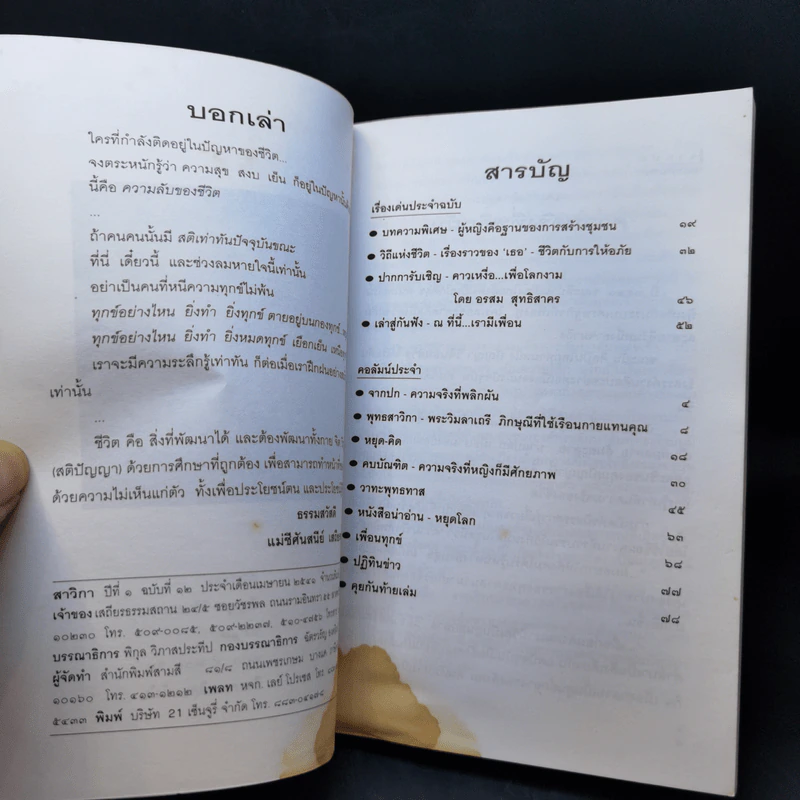 บอกเล่า
ใครที่กำลังติดอยู่ในปัญหาของชีวิต...
จงตระหนักรู้ว่า ความสุข สงบ เย็น ก็อยู่ในปัญหานั้น
นี้คือ ความลับของชีวิต
...
ถ้าคนคนนั้นมี สติเท่าทันปัจจุบันขณะ
ที่นี่ เดี๋ยวนี้ และช่วงลมหายใจนี้เท่านั้น
อย่าเป็นคนที่หนีความทุกข์ไม่พ้น
ทุกข์อย่างไหน ยิ่งทำ ยิ่งทุกข์ ตายอยู่บนกองทุกข์
ทุกข์อย่างไหน ยิ่งทำ ยิ่งหมดทุกข์ เยือกเย็น
เราจะมีความระลึกรู้เท่าทัน ก็ต่อเมื่อเราฝึกฝน
เท่านั้น
...
ชีวิต คือ สิ่งที่พัฒนาได้ และต้องพัฒนาทั้งกาย
(สติปัญญา) ด้วยการศึกษาที่ถูกต้อง เพื่อสามารถทำหน้าที่
ด้วยความไม่เห็นแก่ตัว ทั้งเพื่อประโยชน์ตน และประโยชน์
ธรรมสวัสดี
แม่ชีศันสนีย์
สาวิกา ปีที่ ๑ ฉบับที่ ๑๒ ประจำเดือนเมษายน ๒๕๔๑
เจ้าของ เสถียรธรรมสถาน ๒๔/๕ ซอยวัชรพล ถนนรามอินทรา ๕๕
๑๐๒๓๐ โทร. ๕๐๙-๐๐๘๕, ๕๐๙-๒๒๓๗,
บรรณาธิการ พิกุล วิภาสประทีป กองบรรณาธิการ
ผู้จัดทำ สำนักพิมพ์สามสี ๘๑/๘ ถนนเพชรเกษม บางแค
๑๐๑๖๐ โทร. ๔๑๓-๑๒๑๒ เพลท หจก. เลย์ โปรเซส โทร
๕๔๓๓ พิมพ์ บริษัท 21 เซ็นจูรี่ จำกัด โทร.
สารบัญ
เรื่องเด่นประจำฉบับ
● บทความพิเศษ - ผู้หญิงคือฐานของการสร้างชุมชน ๑๙
● วิถีแห่งชีวิต - เรื่องราวของ 'เธอ' - ชีวิตกับการให้อภัย ๓๒
● ปากการับเชิญ - คาวเหงื่อ...เพื่อโลกงาม
โดย อรสม สุทธิสาคร ๔๖
● เล่าสู่กันฟัง - ณ ที่นี้...เรามีเพื่อน ๕๒
คอลัมน์ประจำ
● จากปก - ความจริงที่พลิกผัน ๔
● พุทธสาวิกา - พระวิมลาเถรี ภิกษุณีที่ใช้เรือนกายแทนคุณ ๘
● หยุด-คิด ๑๘
● คบบัณฑิต - ความจริงที่หญิงก็มีศักยภาพ ๓๐
● วาทะพุทธทาส ๔๕
● หนังสือน่าอ่าน - หยุดโลก ๖๓
● เพื่อนทุกข์ ๖๘
● ปฏิทินข่าว ๗๗
● คุยกันท้ายเล่ม ๗๘